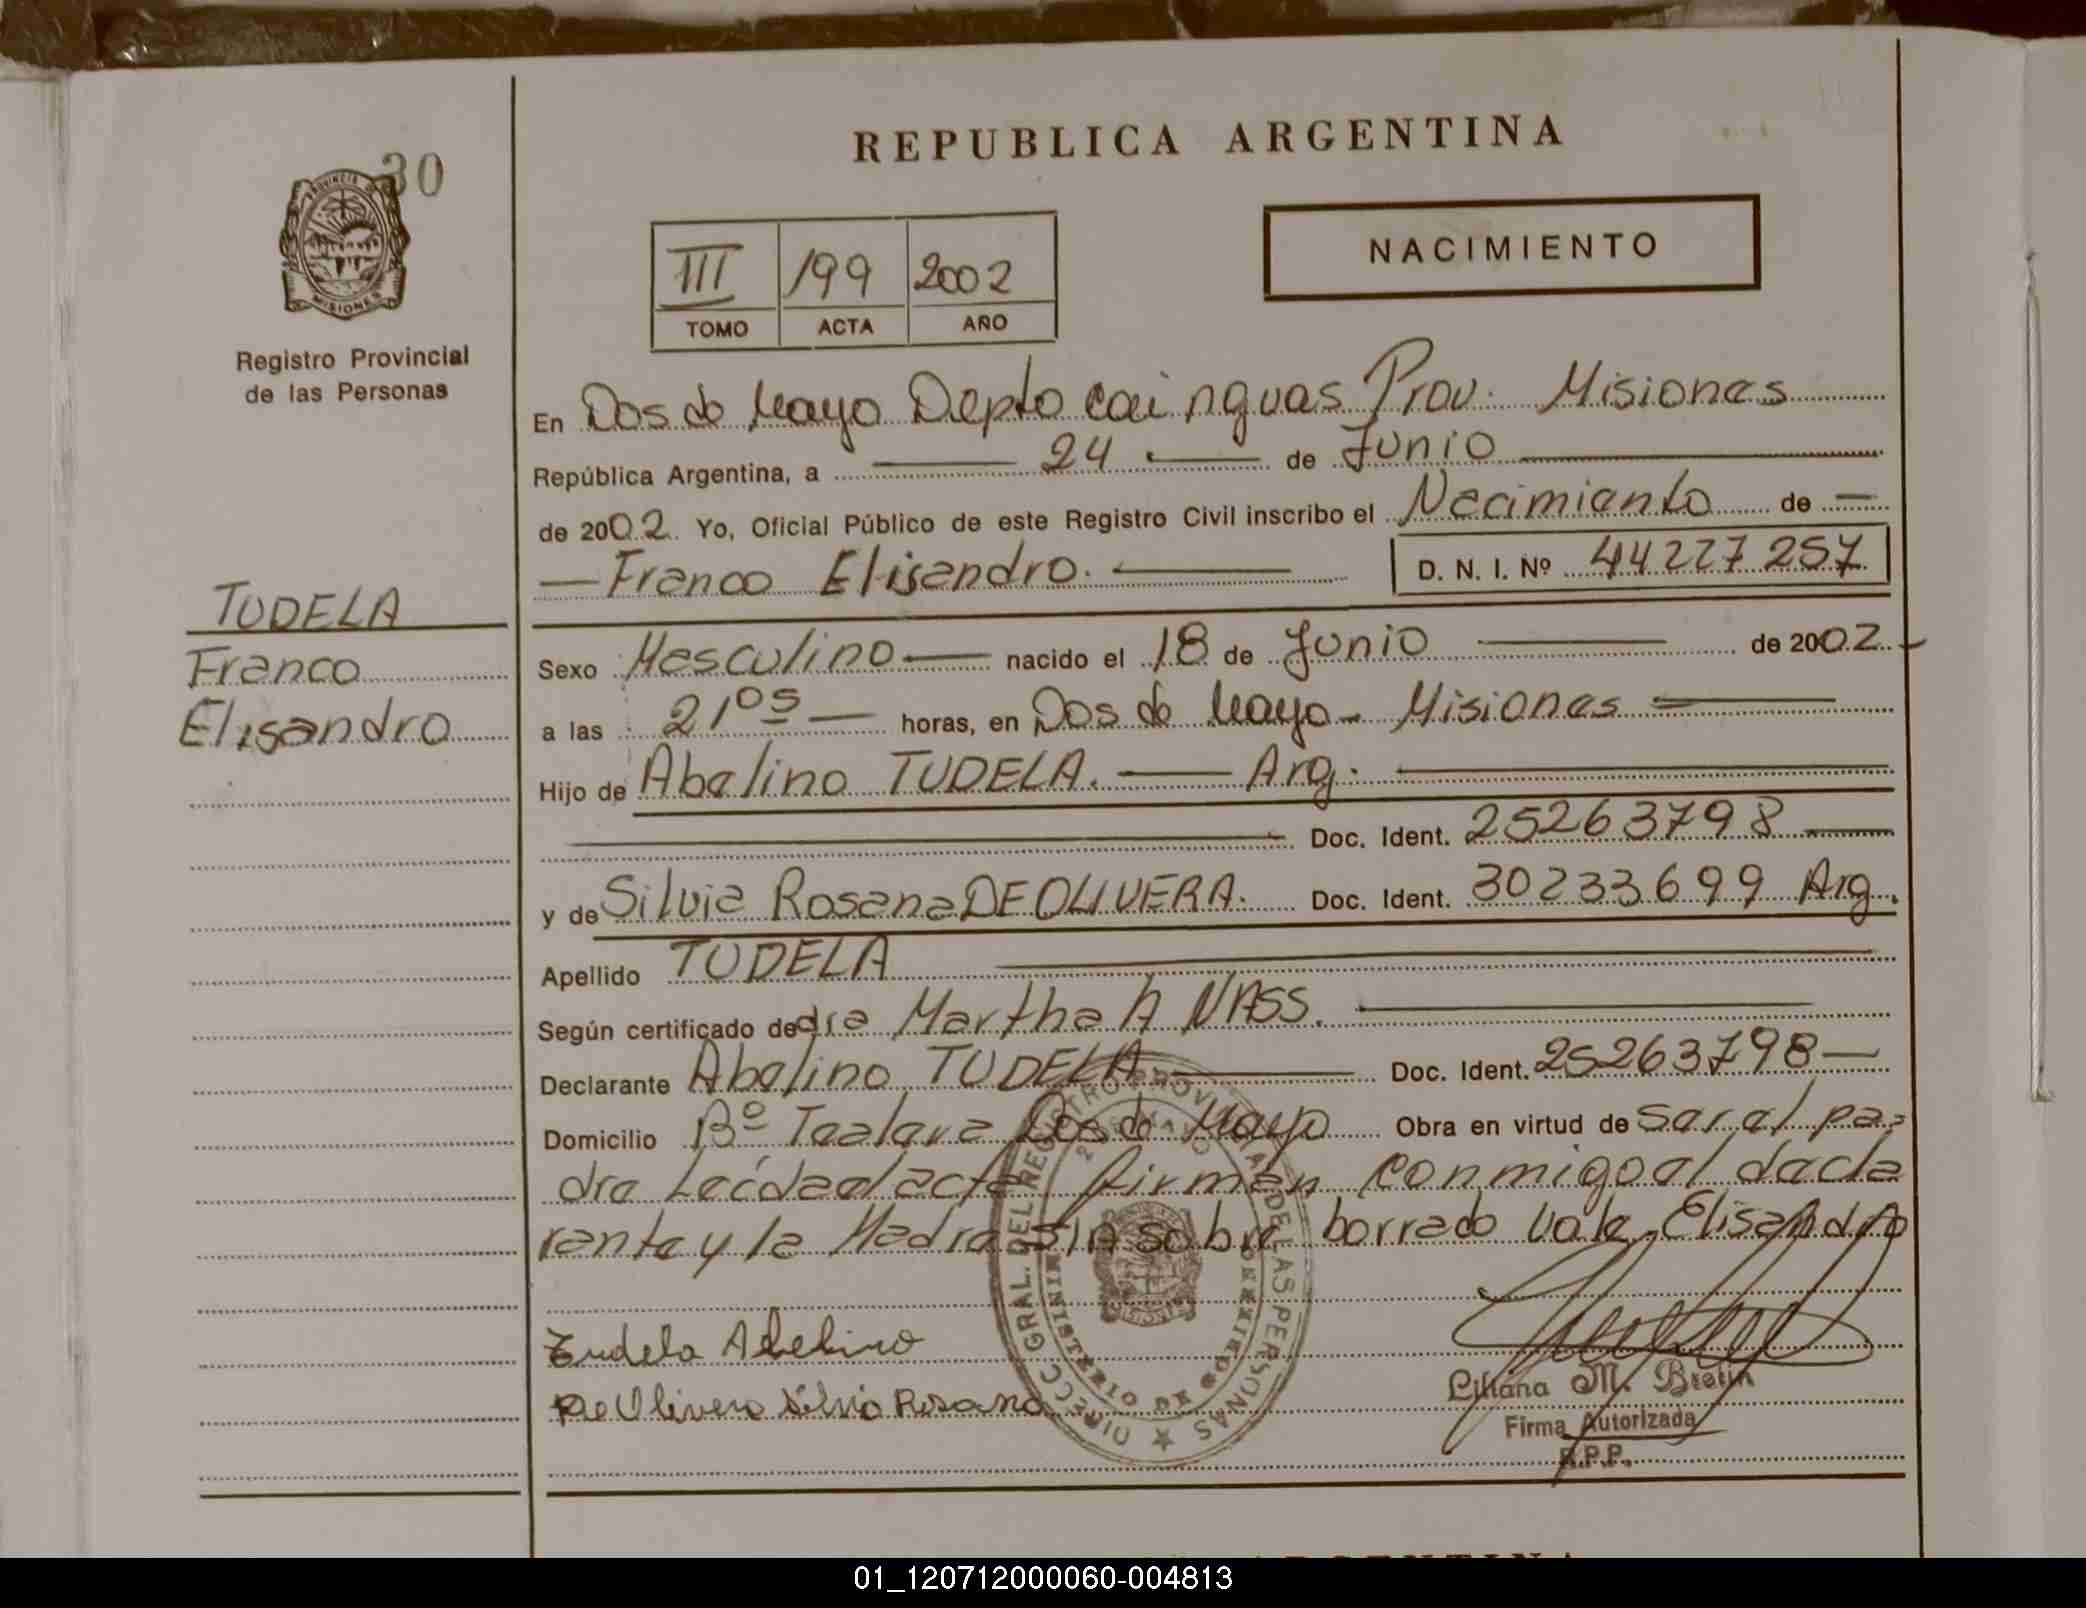 30
PROVINCIA DE
MISIONES
Registro Provincial
de las Personas
TUDELA
Franco
Elisandro
REPUBLICA ARGENTINA
III 199 2002
TOMO ACTA AÑO
NACIMIENTO
En Dos de Mayo Depto Cainguas Prov. Misiones
República Argentina, a 24 de Junio
de 2002 Yo, Oficial Público de este Registro Civil inscribo el Nacimiento de
Franco Elisandro. D. N. I. Nº 44227257
Sexo Masculino nacido el 18 de Junio de 2002
a las 21 05 horas, en Dos de Mayo - Misiones
Hijo de Abelino TUDELA. Arg.
Doc. Ident. 25263798
y de Silvia Rosana DE OLIVERA. Doc. Ident. 30233699 Arg.
Apellido TUDELA
Según certificado de dra Martha A NASS.
Declarante Abelino TUDELA Doc. Ident. 25263798
Domicilio Bº Dos de Mayo Obra en virtud de ser el pa-
dre Leída el acta firman conmigo el decla
rante y la Madre sobre borrado vale Elisandro
Tudela Abelino
De Olivera Silvia Rosana
DIRECC GRAL. DEL REGISTRO PROVINCIAL DE LAS PERSONAS
MINISTERIO DE GOBIERNO
Liliana M.
Firma Autorizada
R.P.P.
01_120712000060-004813